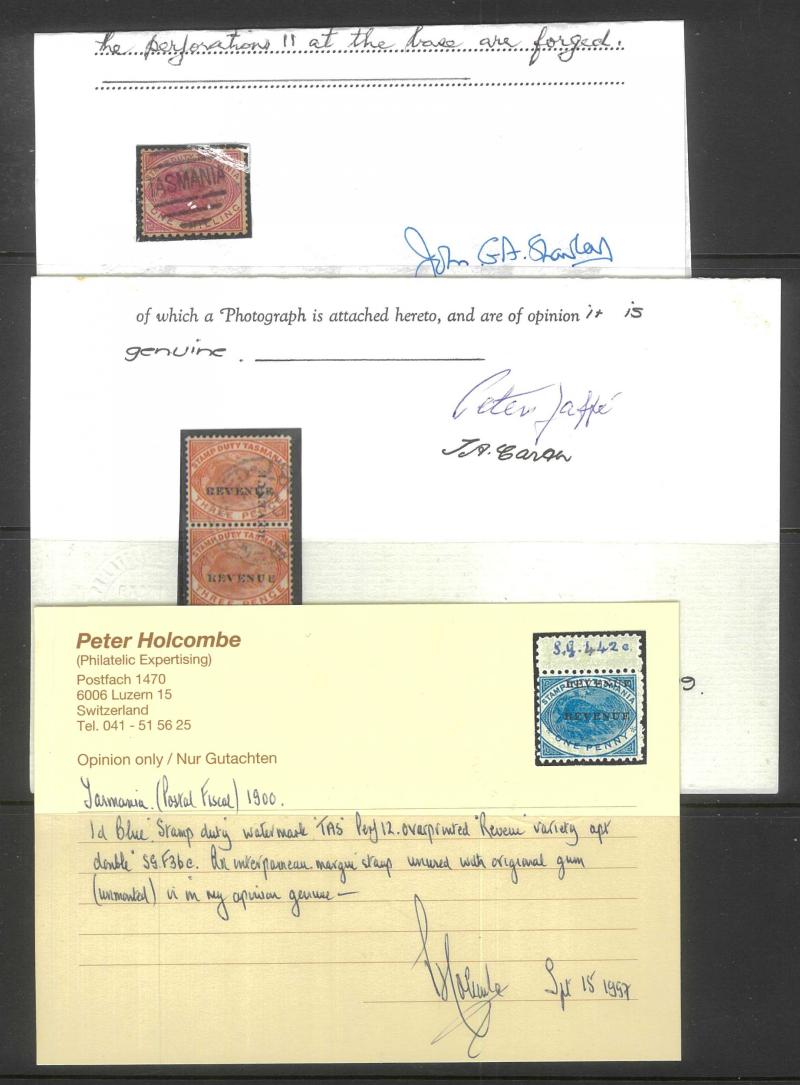 he perforations 11 at the base are forged.
STAMP DUTY TASMANIA
TASMANIA
ONE SHILLING
John G.A.
of which a Photograph is attached hereto, and are of opinion it is
genuine.
Peter Jaffé
J.A.
STAMP DUTY TASMANIA
REVENUE
THREE PENCE
STAMP DUTY TASMANIA
REVENUE
THREE PENCE
9.
Peter Holcombe
(Philatelic Expertising)
Postfach 1470
6006 Luzern 15
Switzerland
Tel. 041 - 51 56 25
S.G. 442c
REVENUE
STAMP DUTY TASMANIA
REVENUE
ONE PENNY
Opinion only / Nur Gutachten
Tasmania. (Postal Fiscal) 1900.
1d Blue "Stamp duty" watermark "TAS" Perf 12. overprinted "Revenue" variety opt
double" SG.F36c. An interpanneau margin stamp unused with original gum
(unmounted) is in my opinion genuine —
P Holcombe Sept 15 1997